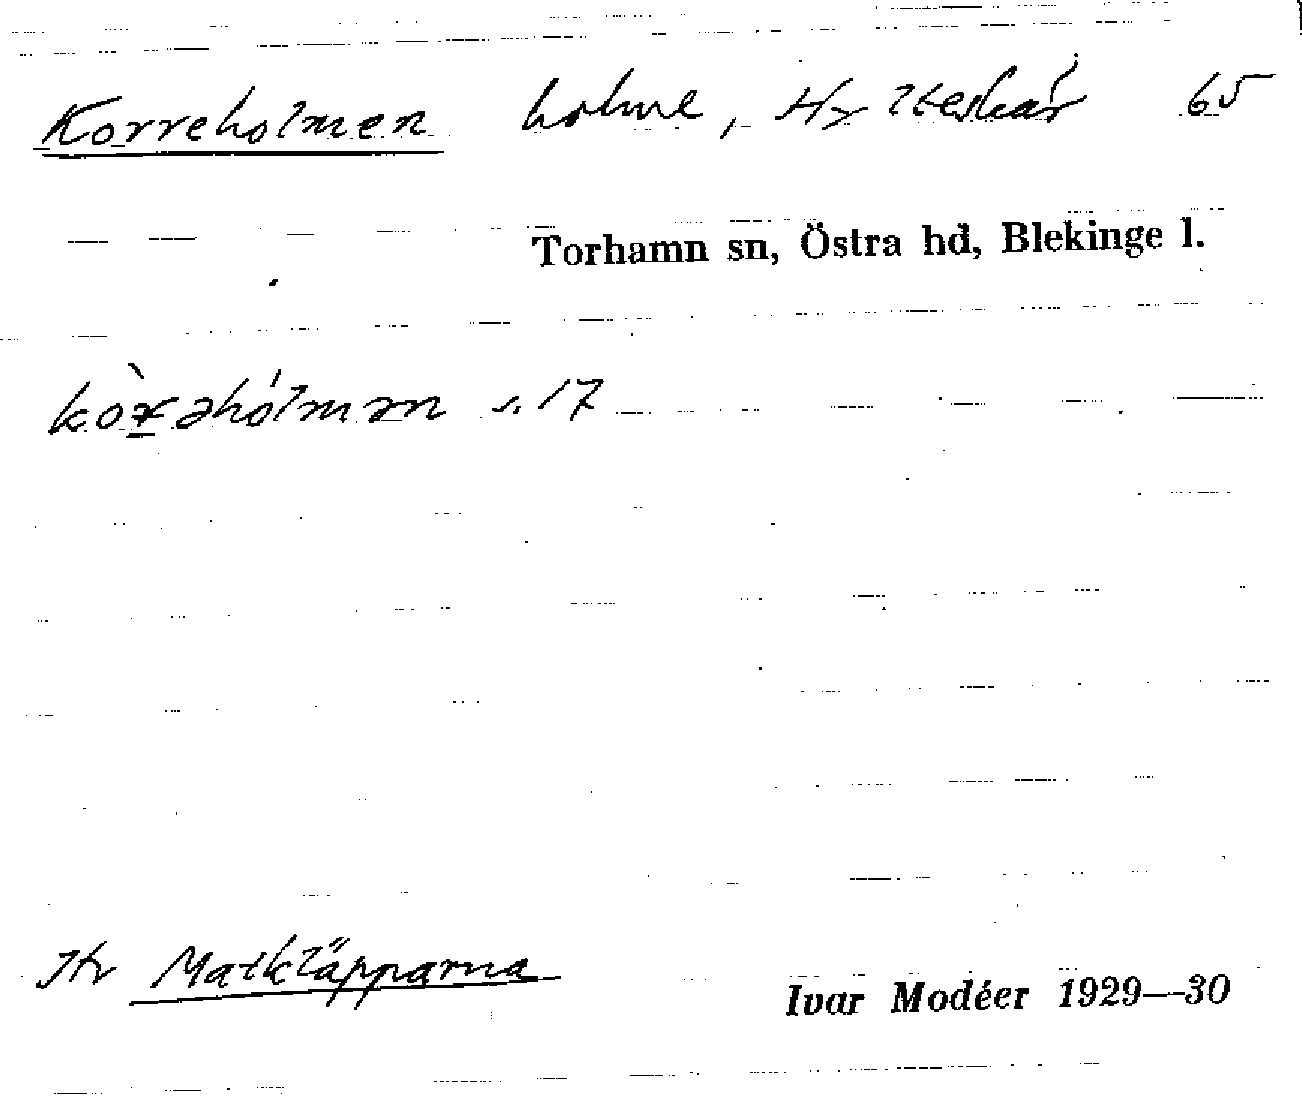 Korreholmen holme, Hylteskär 65
Torhamn sn, Östra hd, Blekinge l.
kòrəhólmən s. 17
Jfr Matkläpparna
Ivar Modéer 1929—30